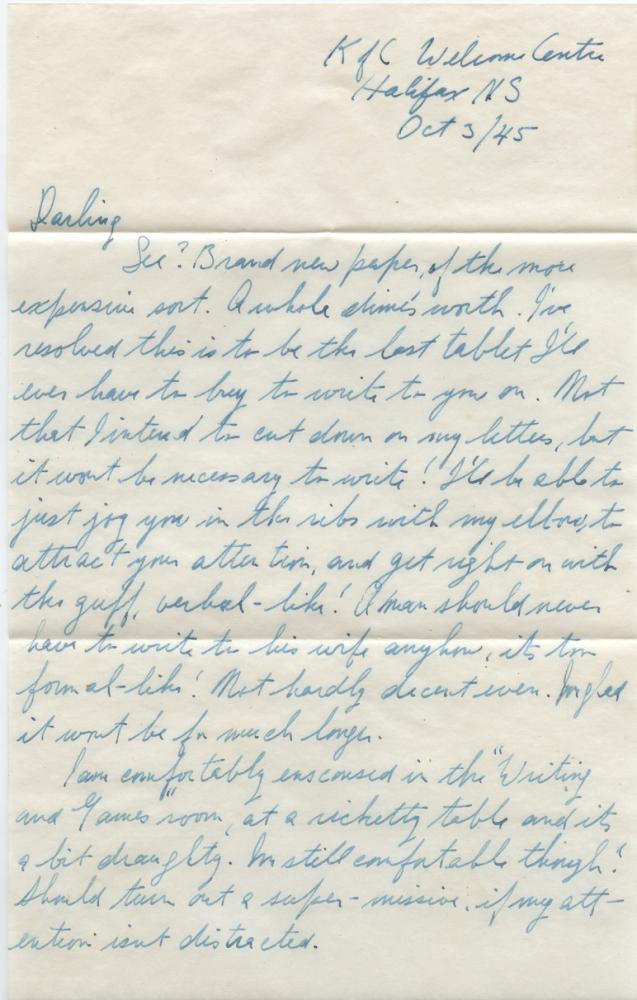 K of C Welcome Centre
Halifax NS
Oct 3/45
Darling
See? Brand new paper, of the more
expensive sort. A whole dime's worth. I've
resolved this is to be the last tablet I'll
ever have to buy to write to you on. Not
that I intend to cut down on my letters, but
it wont be necessary to write! I'll be able to
just jog you in the ribs with my elbow, to
attract your attention, and get right on with
the guff, verbal-like! A man should never
have to write to his wife anyhow, its too
formal-like! Not hardly decent even. Im glad
it wont be for much longer.
I am comfortably ensconsed in the "Writing
and Games" room, at a ricketty table and its
a bit draughty. Im still comfortable though!
Should turn out a super-missive, if my att-
ention isnt distracted.